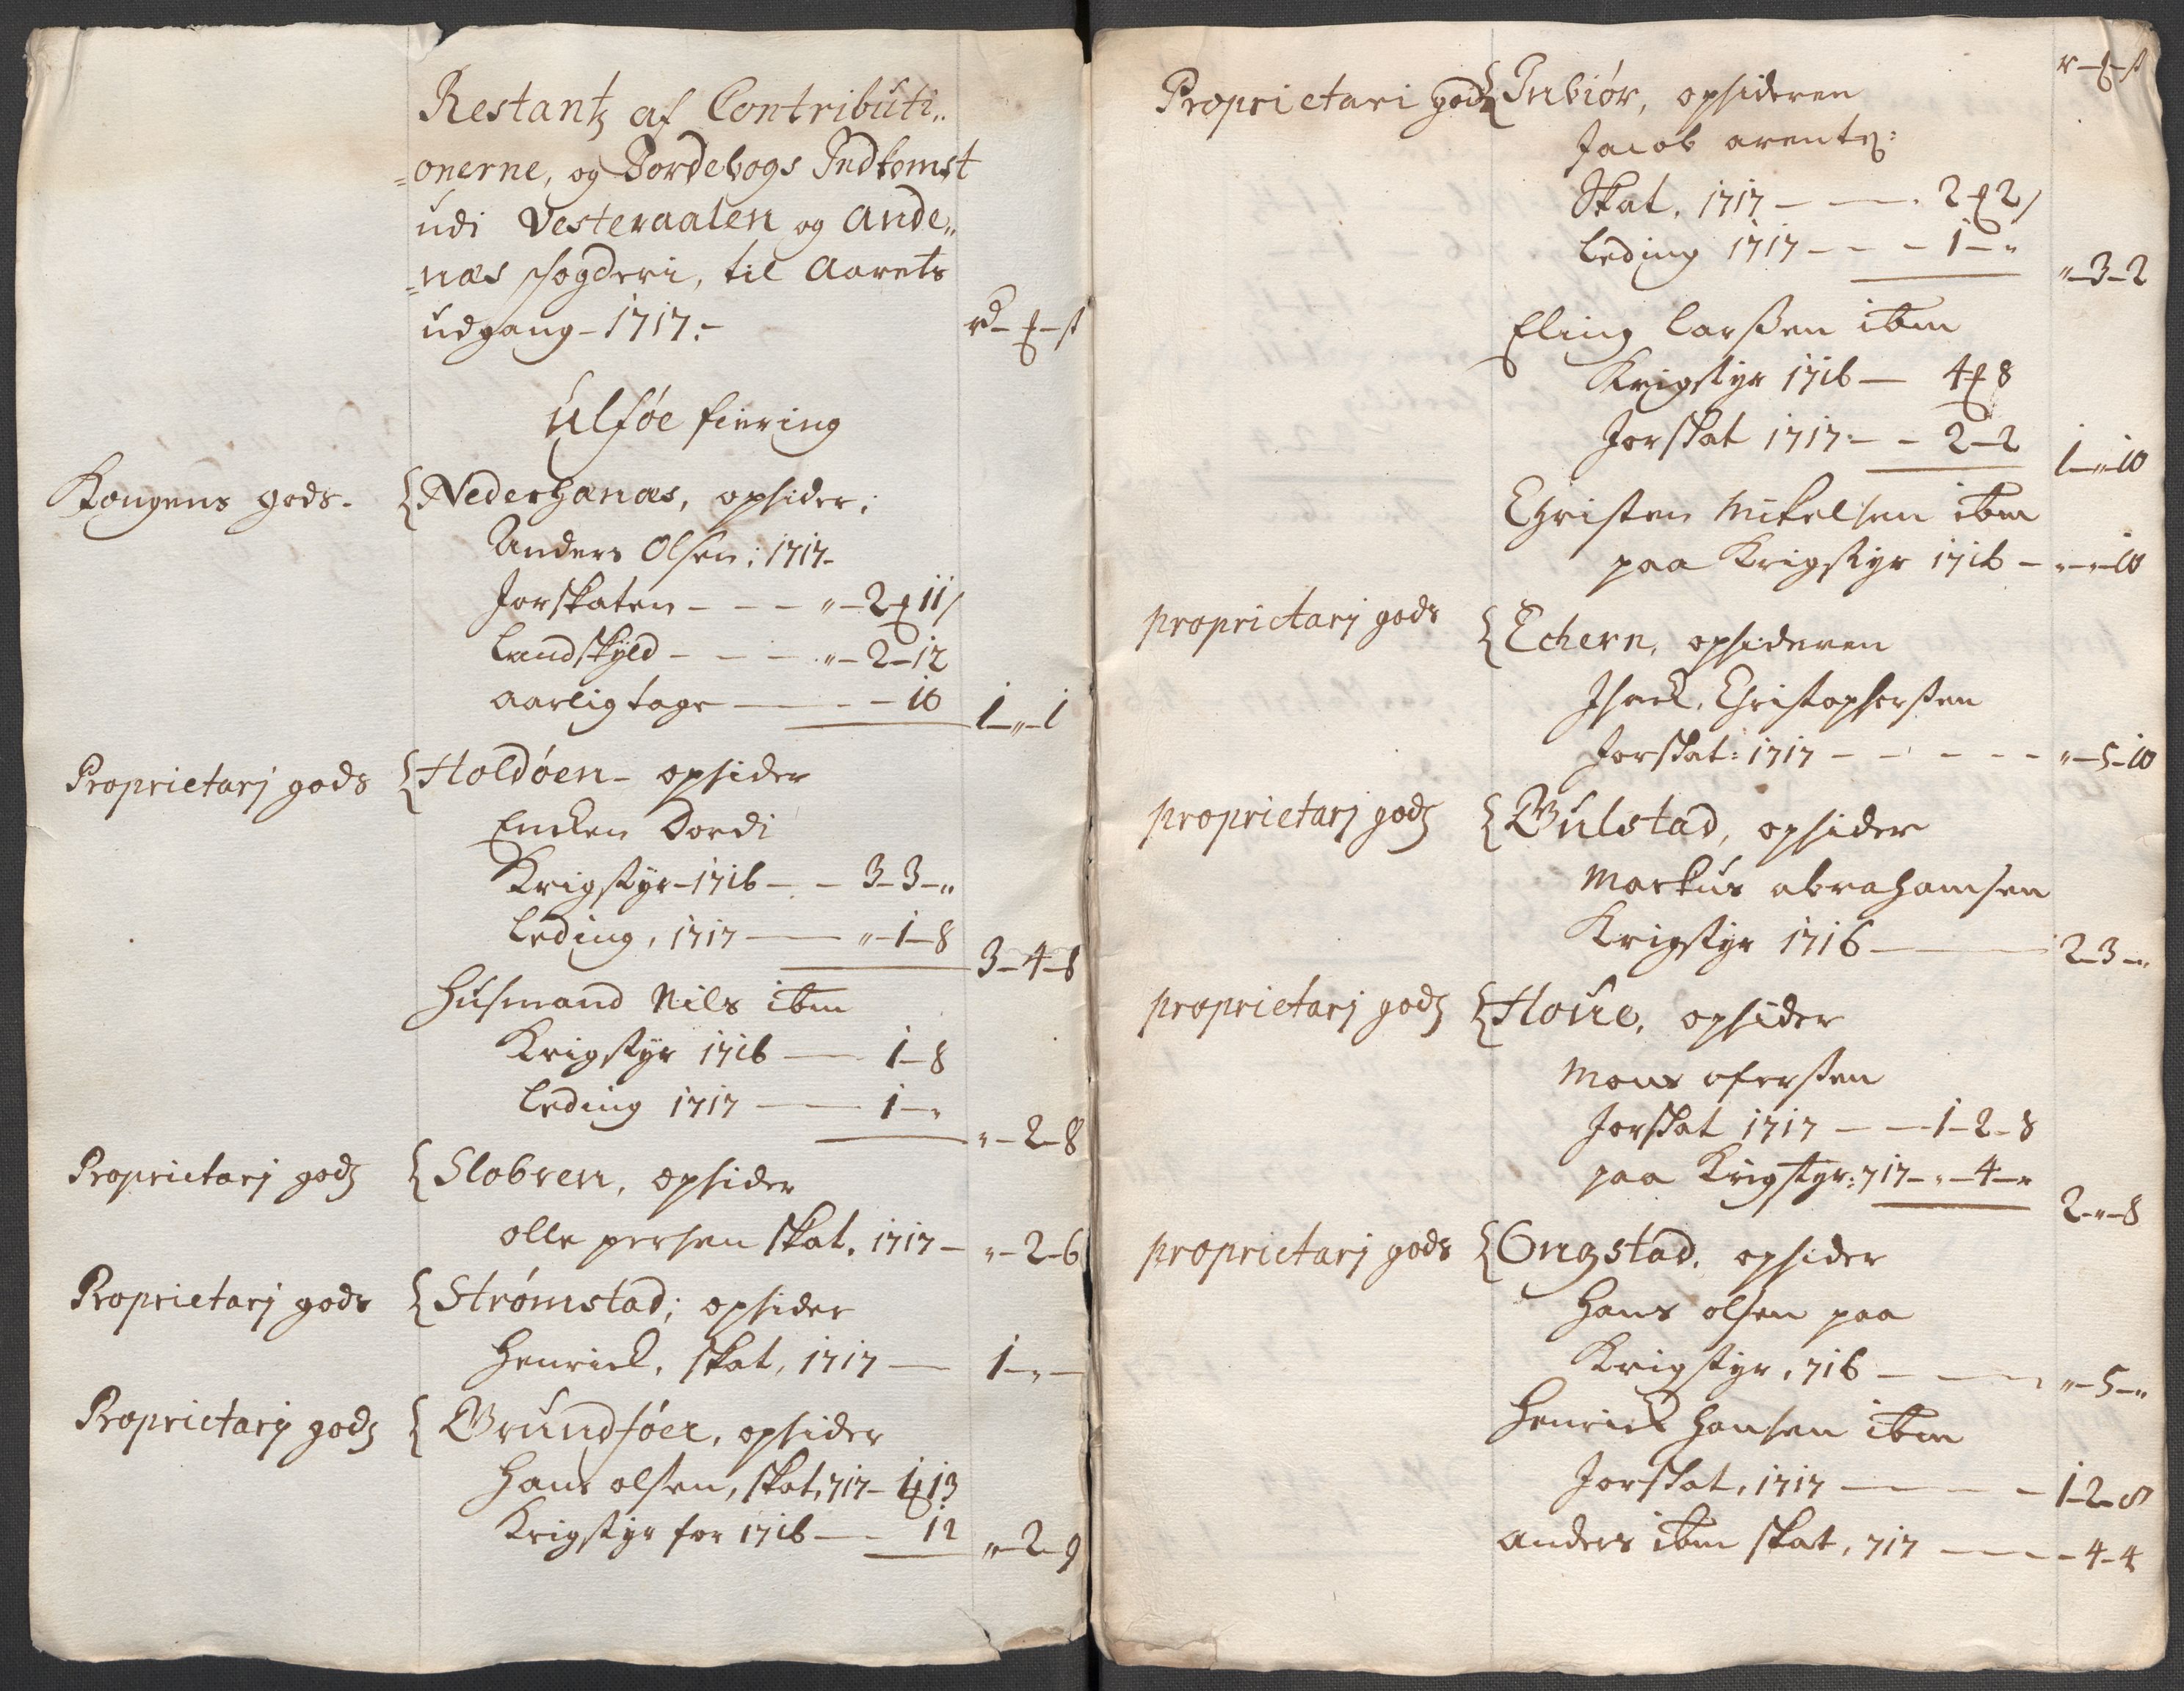 Restantz af Contributi„
„onerne, og Jordebogs Indkomst
udi Vesteraalen og Ande„
„næs fogderi, til Aarets
udgang - 1717.-
rd - ß
Ulføe fiering
Kongens gods. { Nederhanæs, opsider:
Anders Olsen: 1717-
Jorskaten - - - „-2-11
Landskyld - - - „-2-12
aarlig tage - - 10 1-„-1
Proprietarj gods { Holdøen - opsider
Encken Dordi
Krigstyr - 1716 - - 3-3-„
Leding, 1717 - „-1-8 3-4-8
Husmand Nils ibm
Krigstyr 1716 - 1-8
Leding 1717 - 1-„ „-2-8
Proprietarj godz { Slobren, opsider
olle persen skat, 1717 - „-2-6
Proprietarj gods { Strømstad; opsider
Henrick, skat, 1717 - 1-„-
Proprietarij godz { Grundføer, opsider
Hans olsen, skat, 717 - 1 13
Krigstyr for 1716 - 12 „-2-9
r - ß
Proprietari godz { Inbiór, opsideren
Jacob arents:
Skat. 1717 - - 2 2
Leding 1717 - - - 1-„ „-3-2
Eling Larssen ibm
Krigstyr 1716 - 4 8
Jorskat 1717 - - 2-2 1-„-10
Christen Mikelsen ibm
paa Krigstyr 1716 - „-„-10
proprietarj gods { Echern, opsideren
Isack, Christophersen
Jorskat: 1717 - - - - - „-5-10
proprietarj godz { Bulstad, opsider
Markus abrahamsen
Krigstyr 1716 - 2-3-„
proprietarj godz { Houe, opsider
Mons ofersen
Jorskat 1717 - - 1-2-8
paa Krigstyr: 717 - „-4-„ 2-„-8
proprietarj gods { Ongstad, opsider
Hans olsen paa
Krigstyr, 716 - - - „-5-„
Henrick Hansen ibm
Jorskat, 1717 - - - - 1-2-8
anders ibm skat, 717 - - - 4-4